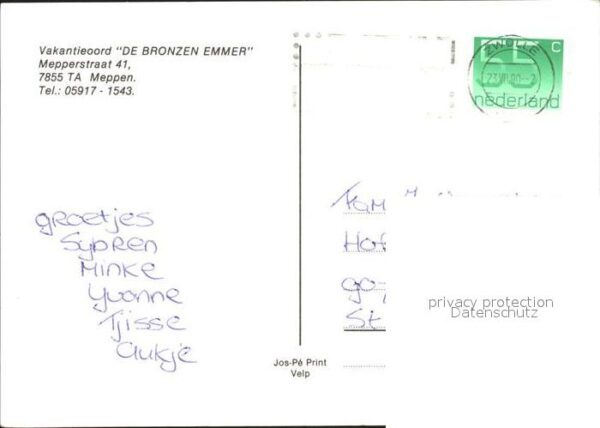 Vakantieoord "DE BRONZEN EMMER"
Mepperstraat 41,
7855 TA Meppen.
Tel.: 05917 - 1543.
ZWOLLE
C
55
nederland
groetjes
Sypren
Minke
Yvonne
Tjisse
Aukje
Fam
Hof
90-
St
privacy protection
Datenschutz
Jos-Pé Print
Velp